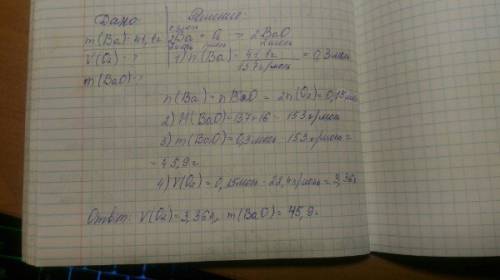 Дано
m(Ba)=41,1г
V(O₂)-?
m(BaO)-?
Решение
2Ba + O₂ = 2BaO
1) n(Ba)= 41,1г / 137г/моль = 0,3моль
n(Ba)=nBaO = 2n(O₂)=0,15моль
2) M(BaO)=137+16=153г/моль
3) m(BaO)=0,3моль · 153г/моль=
=45,9г
4) V(O₂)=0,15моль · 22,4л/моль=3,36л
Ответ: V(O₂)=3,36л, m(BaO)=45,9г